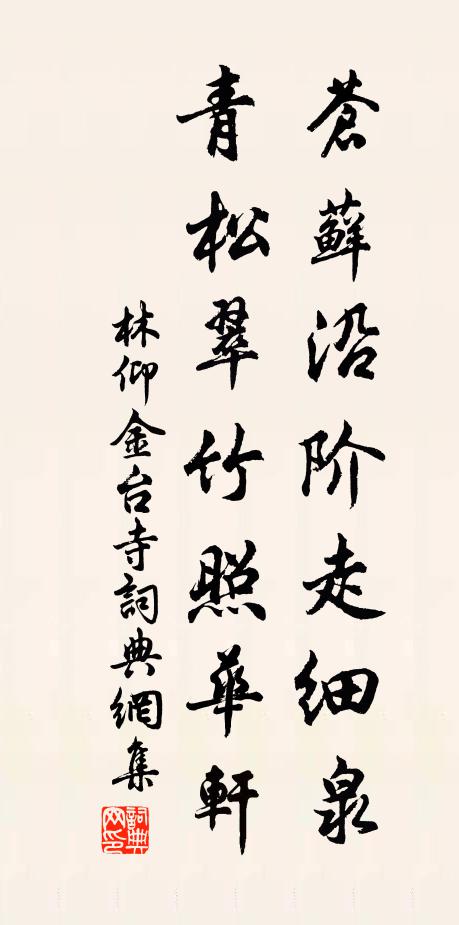 蒼蘚沿阶走细泉
青松翠竹照華軒
林仰金台寺詞典網集
詞典网印